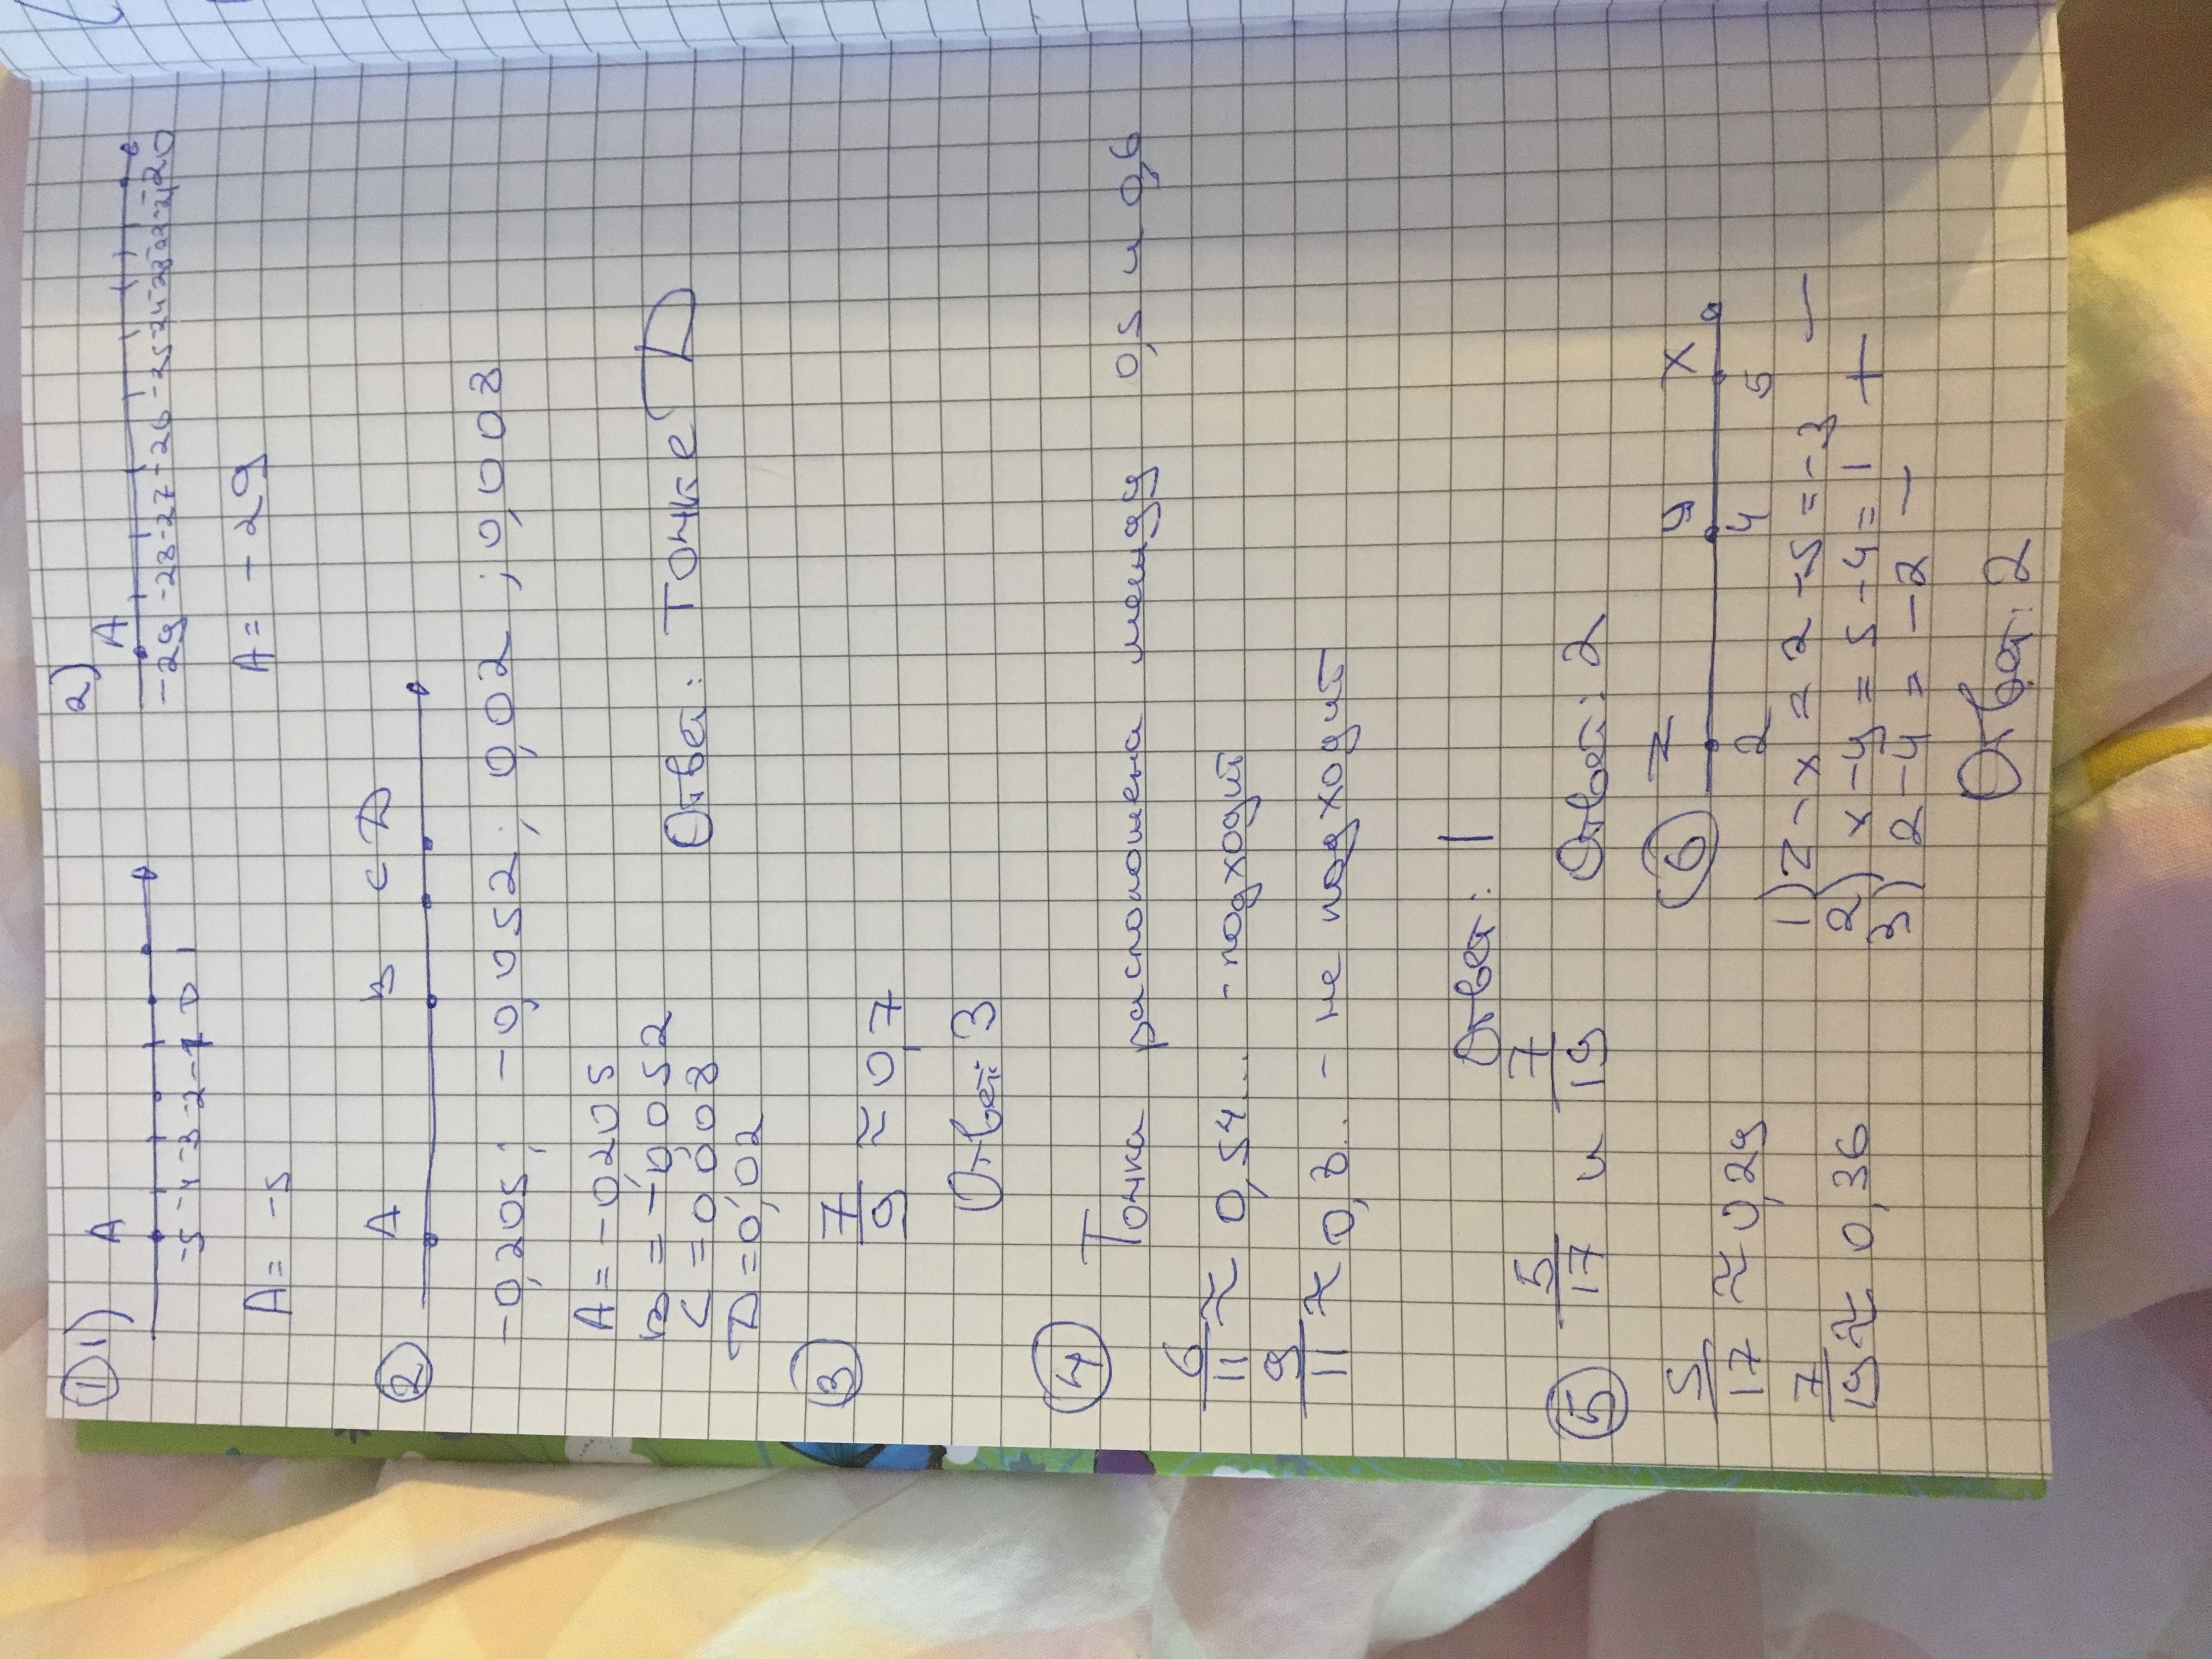 ① 1) A 2) A
-5 -4 -3 -2 -1 0 1 -29 -28 -27 -26 -25 -24 -23 -22 -21 -20
A = -5 A = -29
② A B C D
-0,205; -0,052; 0,02; 0,008
A = -0,205
B = -0,052
C = 0,008 Ответ: Точке D
D = 0,02
③ 7/9 ≈ 0,7
Ответ: 3
④ Точка расположена между 0,5 и 0,6
6/11 ≈ 0,54... - подходит
9/11 ≈ 0,8.. - не подходит
Ответ: 1
⑤ 5/17 и 7/19 Ответ: 2
5/17 ≈ 0,29
7/19 ≈ 0,36
⑥ z y x
2 4 5
1) z - x = 2 - 5 = -3 -
2) x - y = 5 - 4 = 1 +
3) 2 - 4 = -2 -
Ответ: 2